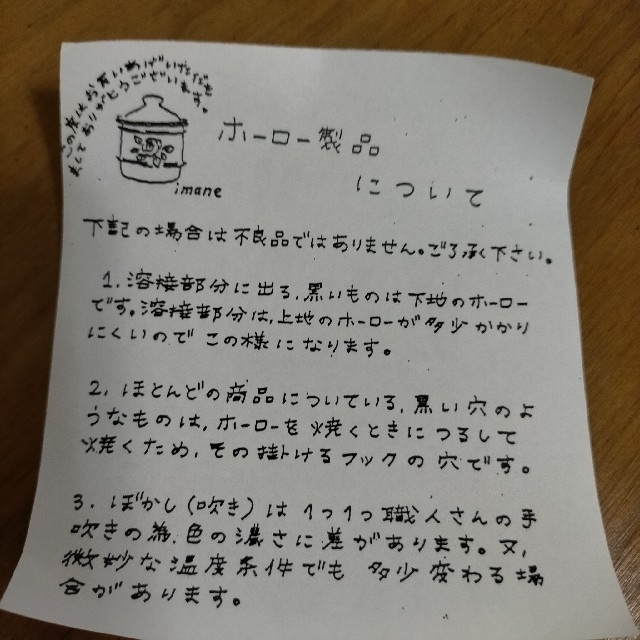 この度はお買いあげいただき
まして ありがとうございます。
imane
ホーロー製品
について
下記の場合は不良品ではありません。ご了承下さい。
1. 溶接部分に出る、黒いものは下地のホーロー
です。溶接部分は、上地のホーローが多少かかり
にくいので この様になります。
2. ほとんどの商品についている、黒い穴のよ
うなものは、ホーローを焼くときにつるして
焼くため、その掛けるフックの穴です。
3. ぼかし(吹き)は1つ1つ職人さんの手
吹きの為、色の濃さに差があります。又、
微妙な温度条件でも 多少変わる場
合があります。